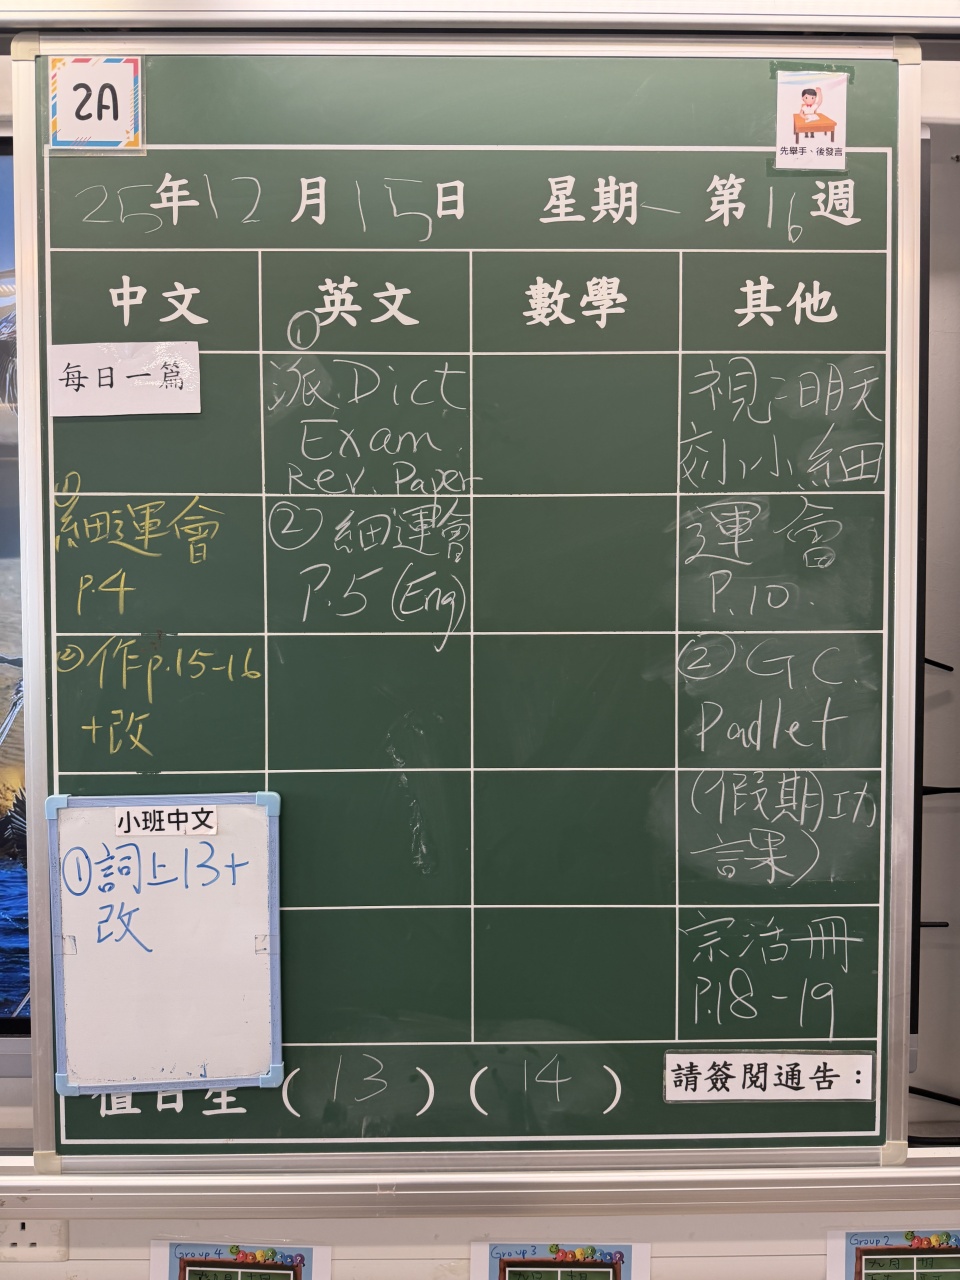 2A
先舉手、後發言
25年12月15日 星期一 第16週
中文 英文 數學 其他
每日一篇
①
細運會
p.4
②作p.15-16
+改
小班中文
①詞上13+
改
①
派Dict
Exam.
Rev. Paper
②細運會
P.5 (Eng)
視:明天
刻小細
運會
P.10.
②G.C.
Padlet
(假期)功
課)
宗活冊
P.18-19
值日生 (13) (14)
請簽閱通告:
Group 4
Group 3
Group 2